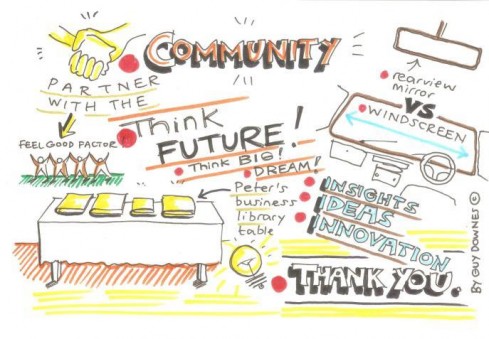 COMMUNITY
PARTNER
WITH THE
FEEL GOOD FACTOR
Think
FUTURE!
Think BIG!
DREAM!
Peter's
business
library
table
rearview
mirror
VS
WINDSCREEN
INSIGHTS
IDEAS
INNOVATION
THANK YOU.
BY GUY DOWNES ©